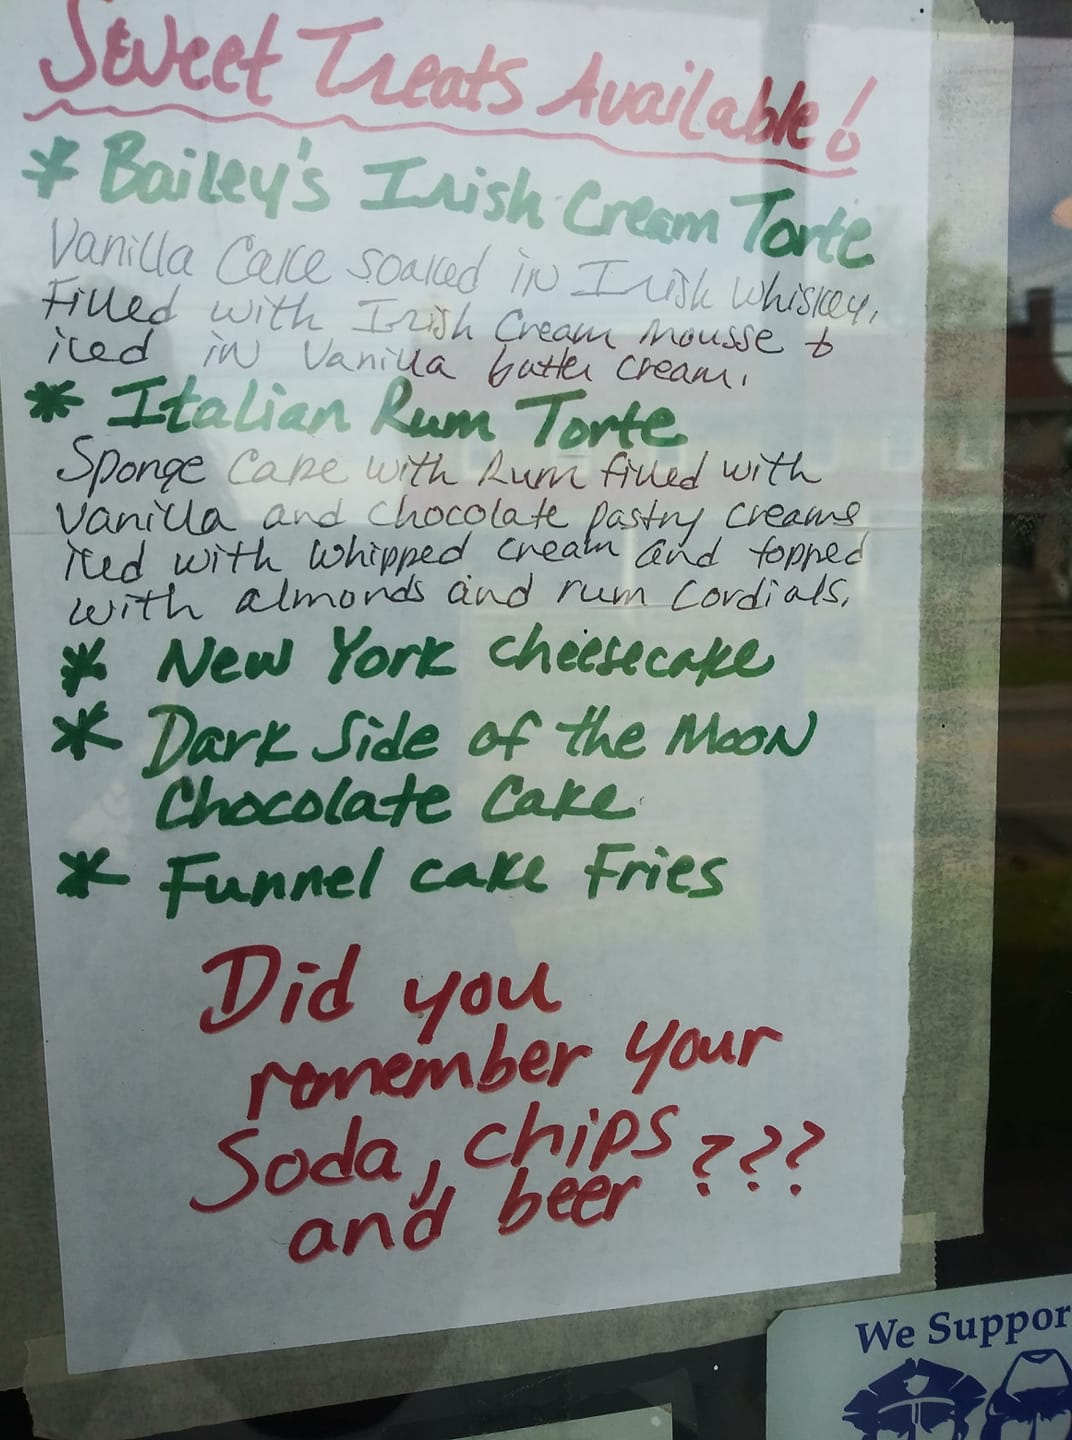 Sweet Treats Available!
* Bailey's Irish Cream Torte
Vanilla Cake soaked in Irish Whiskey,
Filled with Irish Cream Mousse &
iced in Vanilla butter cream.
* Italian Rum Torte
Sponge Cake with Rum filled with
Vanilla and Chocolate pastry creams
iced with whipped cream and topped
with almonds and rum cordials.
* New York Cheesecake
* Dark Side of the Moon
Chocolate Cake
* Funnel cake Fries
Did you
remember your
Soda, chips ???
and beer
We Suppor